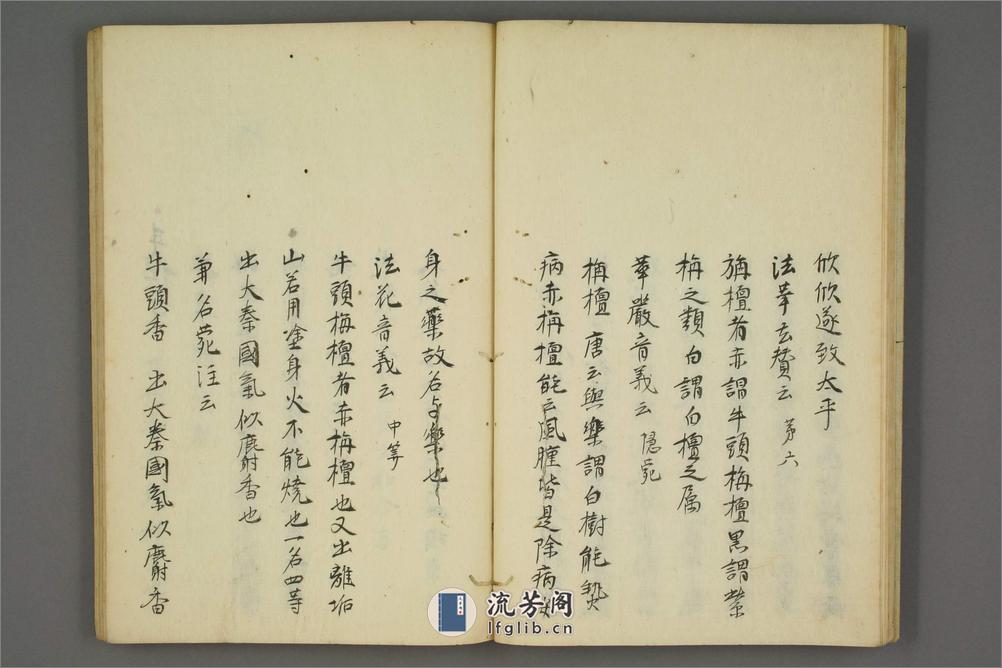 欣欣遂致太平
法華玄賛云 第六
旃檀者赤謂牛頭栴檀黒謂紫
栴之類白謂白檀之属
華嚴音義云 隠菀
栴檀 唐云與樂謂白樹能熱
病赤栴檀能去風腫皆是除病安
身之藥故名与樂也
法花音義云 中筭
牛頭栴檀者赤栴檀也又出離垢
山若用塗身火不能燒也一名四等
出大秦國氣似麝香也
兼名菀注云
牛頭香 出大秦國氣似麝香
流芳阁
lfglib.cn